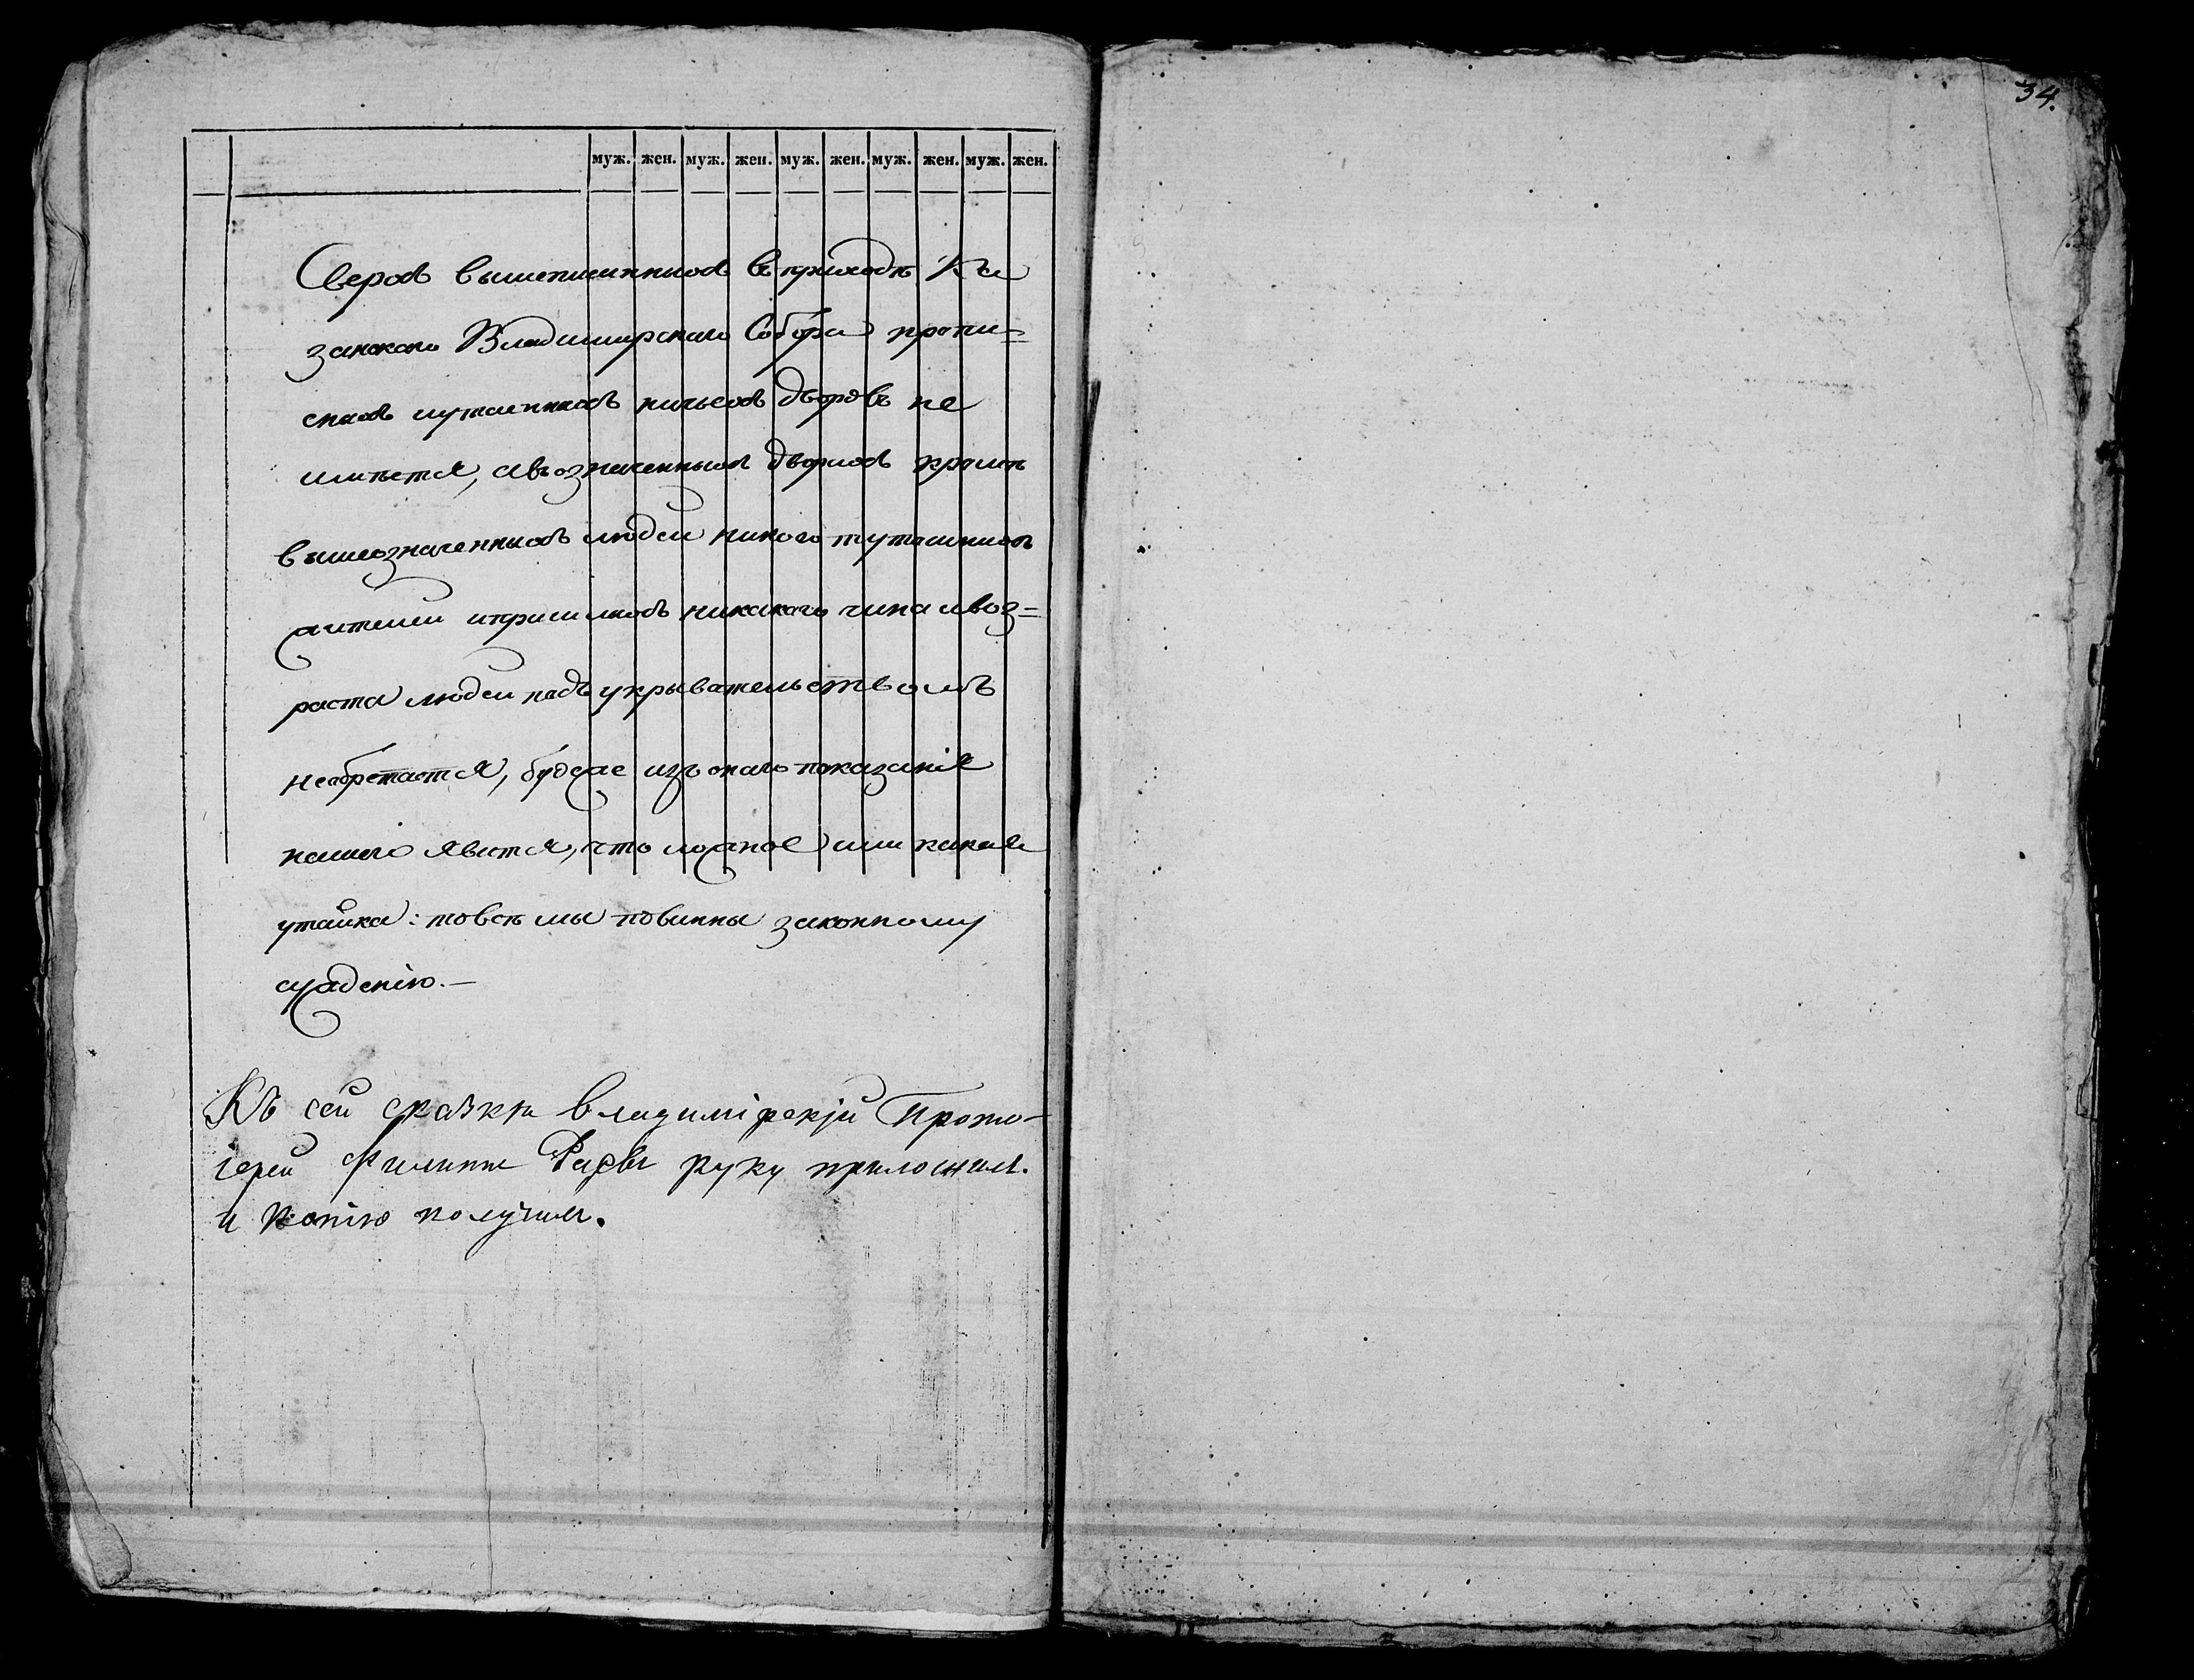 34.
муж. жен. муж. жен. муж. жен. муж. жен. муж. жен.
Сверхъ вышеписанныхъ въ приходѣ Ка
занскаго Владимирскаго Собора пропи=
сныхъ иутаенныхъ ничьехъ дворовъ не
имѣется, авъозначенныхъ дворахъ кромѣ
вышеозначенныхъ людей никого тутошнихъ
жителей ипришлыхъ никакаго чина ивоз=
раста людей подъ укрывательствомъ
необретается, будеже изъ онаго показанія
нашего явится, что ложное или какая
утайка: товсѣ мы повинны законному
суждению.—
Къ сей сказкѣ владимірскій Прото-
іерей Филиппъ руку приложилъ.
и копію получилъ.